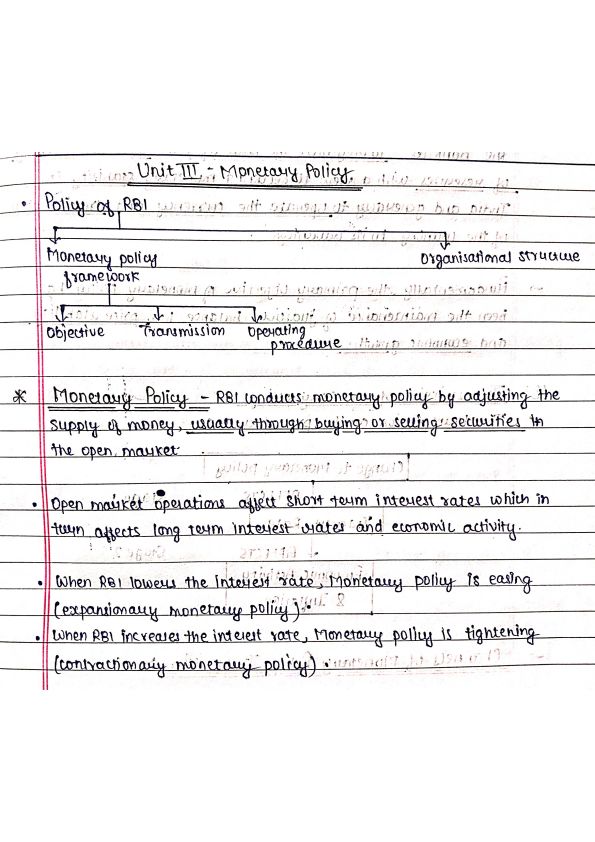 Unit III - Monetary Policy
• Policy of RBI
Monetary policy framework
Organisational structure
Objective Transmission Operating procedure
* Monetary Policy - RBI conducts monetary policy by adjusting the
supply of money, usually through buying or selling securities in
the open market
• Open market operations affect short term interest rates which in
turn affects long term interest rates and economic activity.
• When RBI lowers the interest rate, Monetary policy is easing
(expansionary monetary policy).
• When RBI increases the interest rate, Monetary policy is tightening
(contractionary monetary policy).